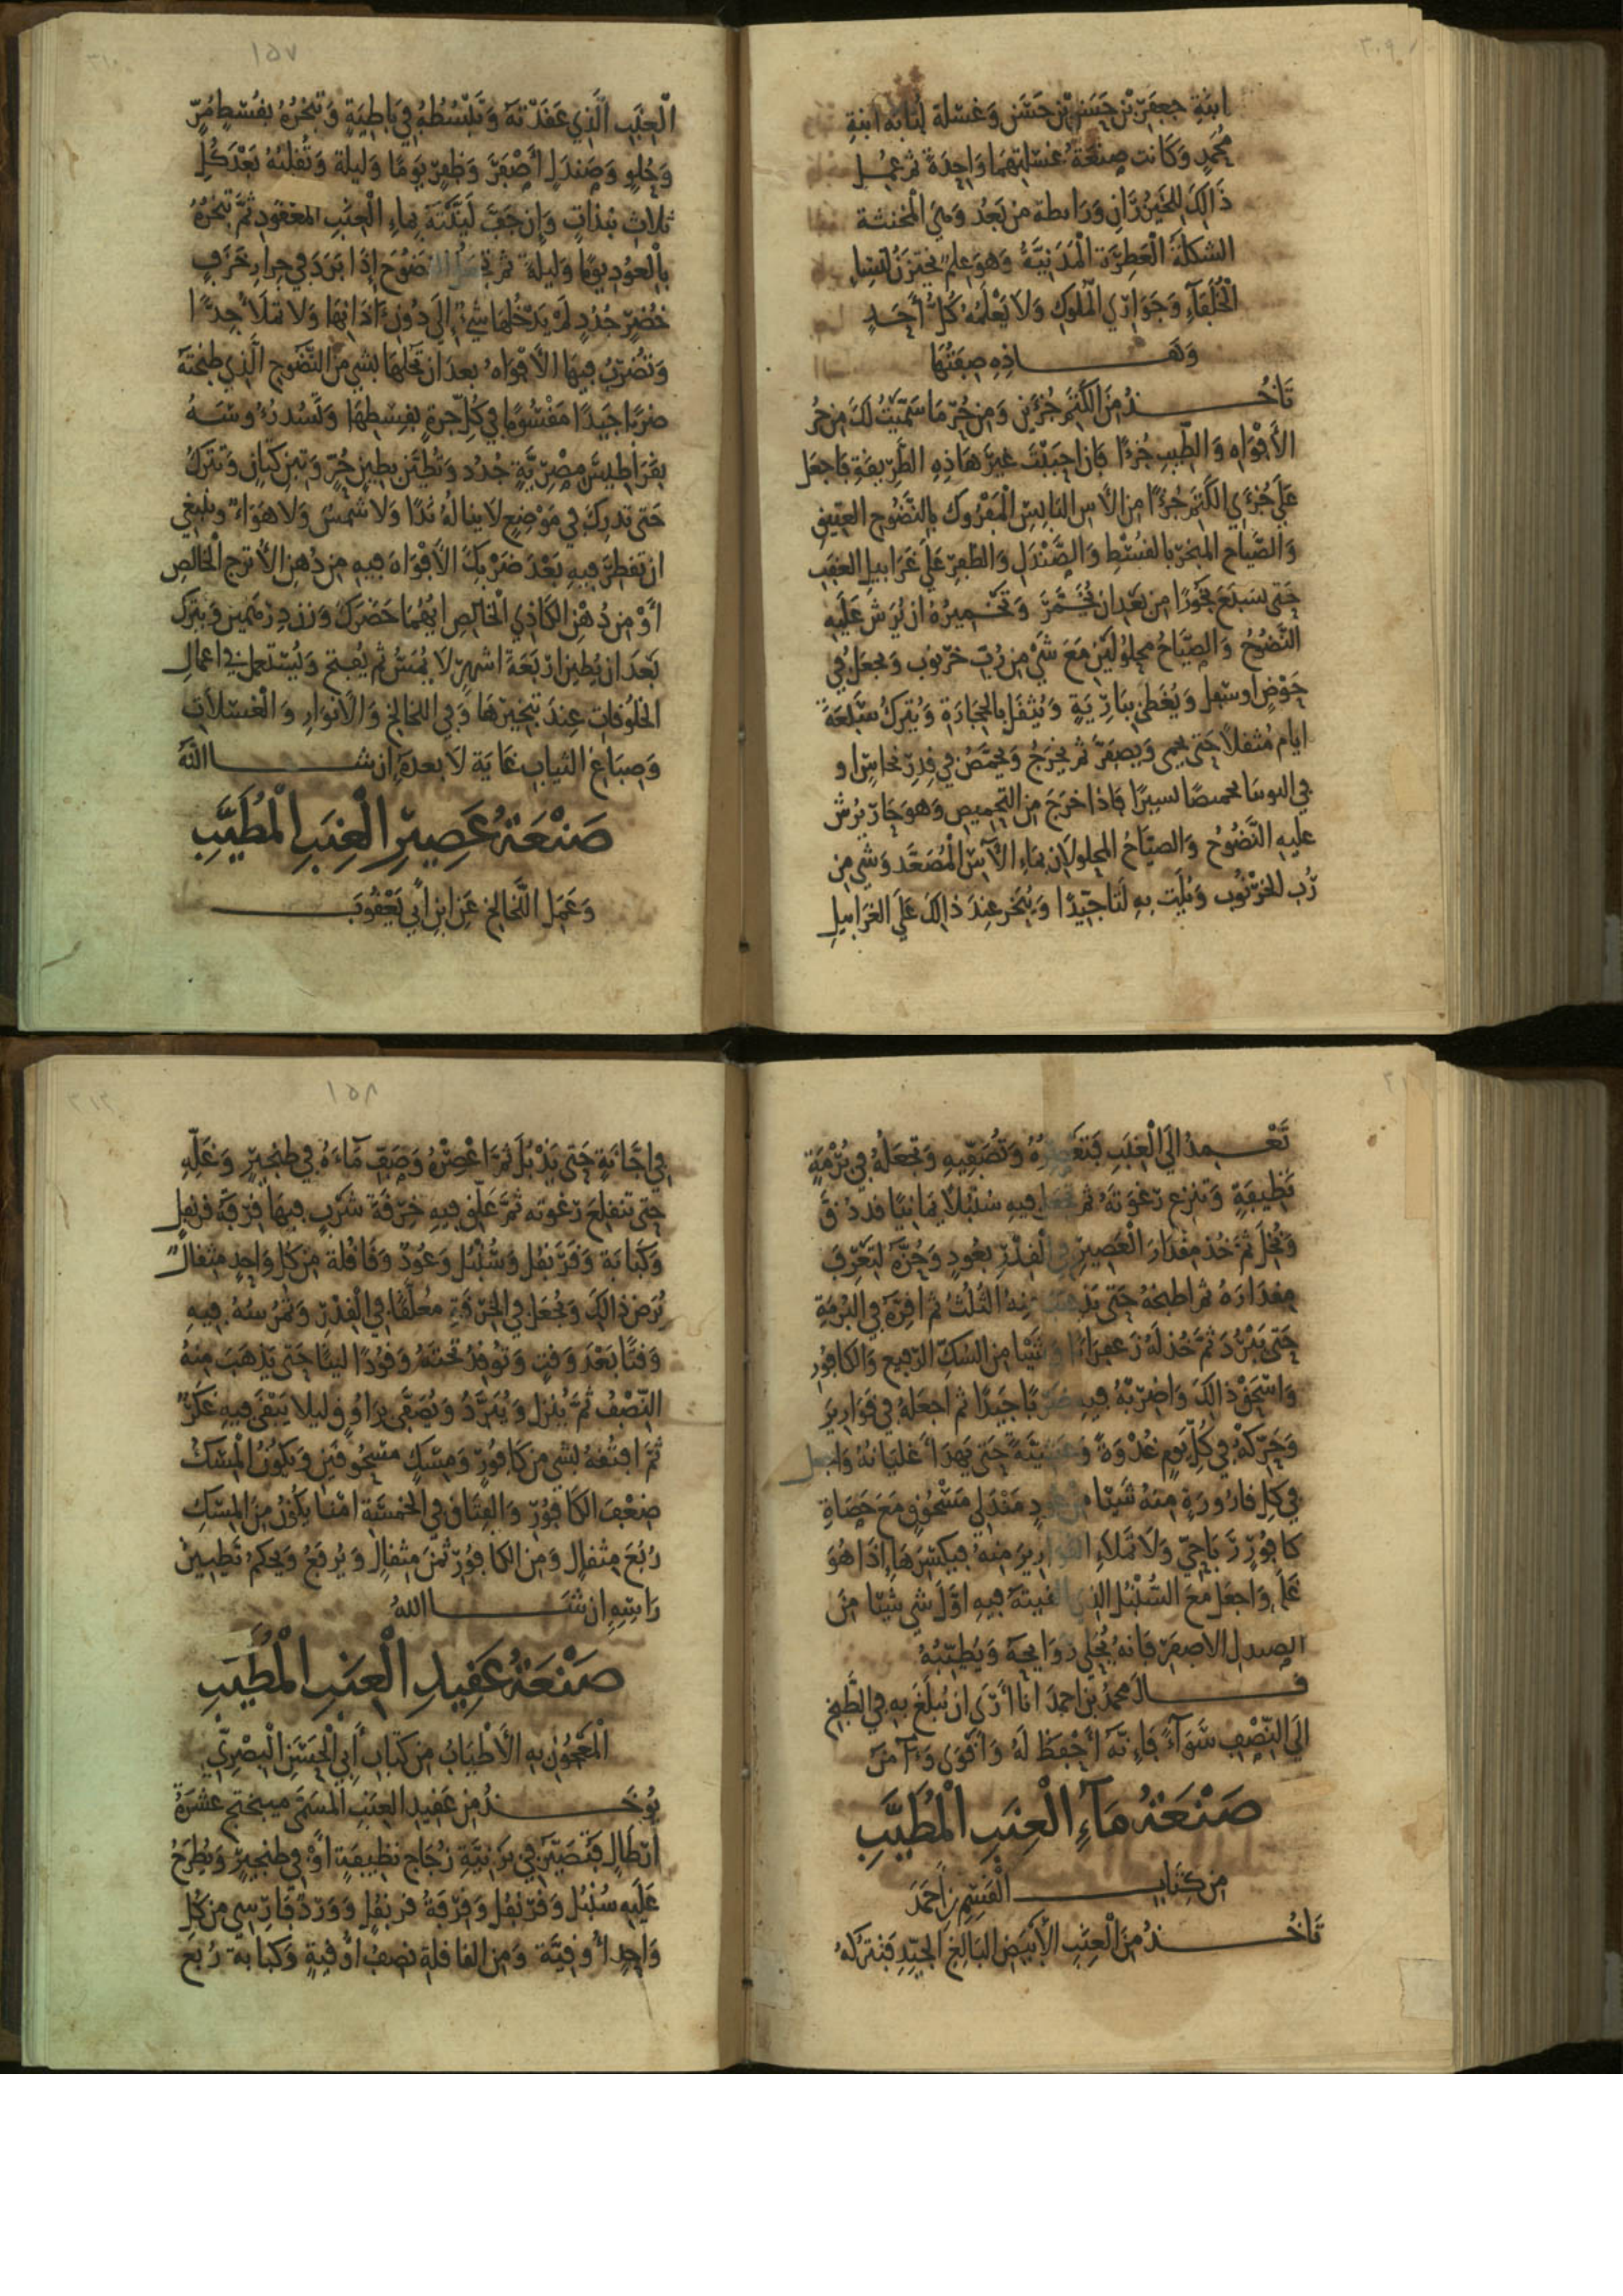 ابنة جعفر بن حسن بن حسن وغسلة لبابة ابنة
محمد وكانت صنعة غسلتهما واحدة ثم عمل
ذالك الخيزران ورابطة من بعد وهي المخنثة
الشكلة العطرة المدنية وهو علم يختزن لنساء
الخلفاء وجواري الملوك ولا يعلمه كل أحد
وهاذه صفتها
تأخذ من الكتم جزءين ومن حر ما سميت لك من حر
الأفواه والطيب جزءا فإن احببت غير هاذه الطريقة فاجعل
على جزءي الكتم جزءا من الآس اليابس المفروك بالنضوح العتيق
والصياح المبخر بالقسط والصندل والظفر على غرابيل العقب
حتى يشبع بخورا من بعد ان يخمر وتخميره ان يرش عليه
النضوح والصياح محلولين مع شيء من رب خرنوب ويجعل في
حوض او سفل ويغطى ببارية ويثقل بالحجارة ويترك سبعة
ايام مثقلا حتى يحمى ويصفر ثم يخرج ويحمص في قدر نحاس او
في تحميصا يسيرا فاذا خرج من التحميص وهو حار يرش
عليه النضوح والصياح المحلولان بماء الآس المصعد وشيء من
رب الخرنوب ويلت به لتا جيدا ويبخر عند ذالك على الغرابيل
١٥٧
العنب الذي عقدته وتبسطه في باطية وتبخره بقسط مر
وحلو وصندل أصفر وظفر يوما وليلة وتقلبه بعد كل
ثلاث بندات وإن جف لينته بماء العنب المعقود ثم تبخره
بالعود يوما وليلة ثم تجعل النضوح إذا برد في جرار خزف
خضر جدد لم يدخلها شيء إلى دون آذانها ولا تملأ جدا
وتضرب فيها الأفواه بعد ان تحلها بشي من النضوح الذي طبخته
ضربا جيدا مقسوما في كل جرة بقسطها وتسد رءوسه
بقراطيس مصرية جدد وتطين بطين حر وتبن كتان وتترك
حتى تدرك في موضع لا يناله ندا ولا شمس ولا هواء وينبغي
ان تقطر فيه بعد ضربك الأفواه فيه من دهن الأترج الخالص
أو من دهن الكاذي الخالص ايهما حضرك وزن درهمين ويترك
بعد ان يطين اربعة اشهر لا يمس ثم يفتح ويستعمل في اعمال
الخلوقات عند تبخيرها وفي اللخالخ والأنوار والغسلات
وصباغ الثياب غاية لا بعده إن شاء الله
صنعة عصير العنب المطيب
وعمل اللخالخ عن ابن أبي يعقوب
تعمد الى العنب فتعصره وتصفيه وتجعله في برمة
نظيفة وتنزع رغوته ثم تجعل فيه سنبلا يمانيا قد دق
ونخل ثم خذ مقدار العصير في القدر بعود وحزه لتعرف
مقداره ثم اطبخه حتى يذهب منه الثلث ثم اقره في البرمة
حتى يبرد ثم خذ له زعفرانا وشيئا من السك الرفيع والكافور
واسحق ذالك واضربه فيه ضربا جيدا ثم اجعله في قوارير
وحركه في كل يوم غدوة وعشية حتى يهدأ غليانه واجعل
في كل قارورة منه شيئا من عود مندلي مسحوق مع حصاة
كافور رباحي ولا تملأ القوارير منه فيكسرها إذا هو
غلا واجعل مع السنبل الذي القيته فيه اول شي شيئا من
الصندل الاصفر فانه يجلي روايحه ويطيبه
قال محمد بن احمد انا أرى ان يبلغ به في الطبخ
الى النصف سواء فإنه أحفظ له وأقوى وآمن
صنعة ماء العنب المطيب
من كتاب القسم بن أحمد
تأخذ من العنب الأبيض البالغ الجيد فتتركه
١٥٨
في اجانة حتى يذبل ثم اعصره وصف ماءه في طنجير وغله
حتى تنقلع رغوته ثم علق فيه خرقة شرب فيها قرفة قرنفل
وكبابة وقرنفل وسنبل وعود وقاقلة من كل واحد مثقال
يرض ذالك ويجعل في الخرقة معلقا في القدر وتمرسه فيه
وقتا بعد وقت وتوقد تحته وقودا لينا حتى يذهب منه
النصف ثم ينزل ويبرد ويصفى براووق ليلا يبقى فيه عكر
ثم افتقه بشي من كافور ومسك مسحوقين ويكون المسك
ضعف الكافور والفتاق في الخمسة امنا يكون من المسك
ربع مثقال ومن الكافور ثمن مثقال ويرفع ويحكم تطيين
راسه إن شاء الله
صنعة عقيد العنب المطيب
المعجون به الأطياب من كتاب أبي الحسن البصري
يوخذ من عقيد العنب المسمى ميبختج عشرة
أرطال فتصير في برنية زجاج نظيفة أو في طنجير ويطرح
عليه سنبل وقرنفل وقرفة قرنفل وورد فارسي من كل
واحد أوقية ومن القاقلة نصف أوقية وكبابة ربع